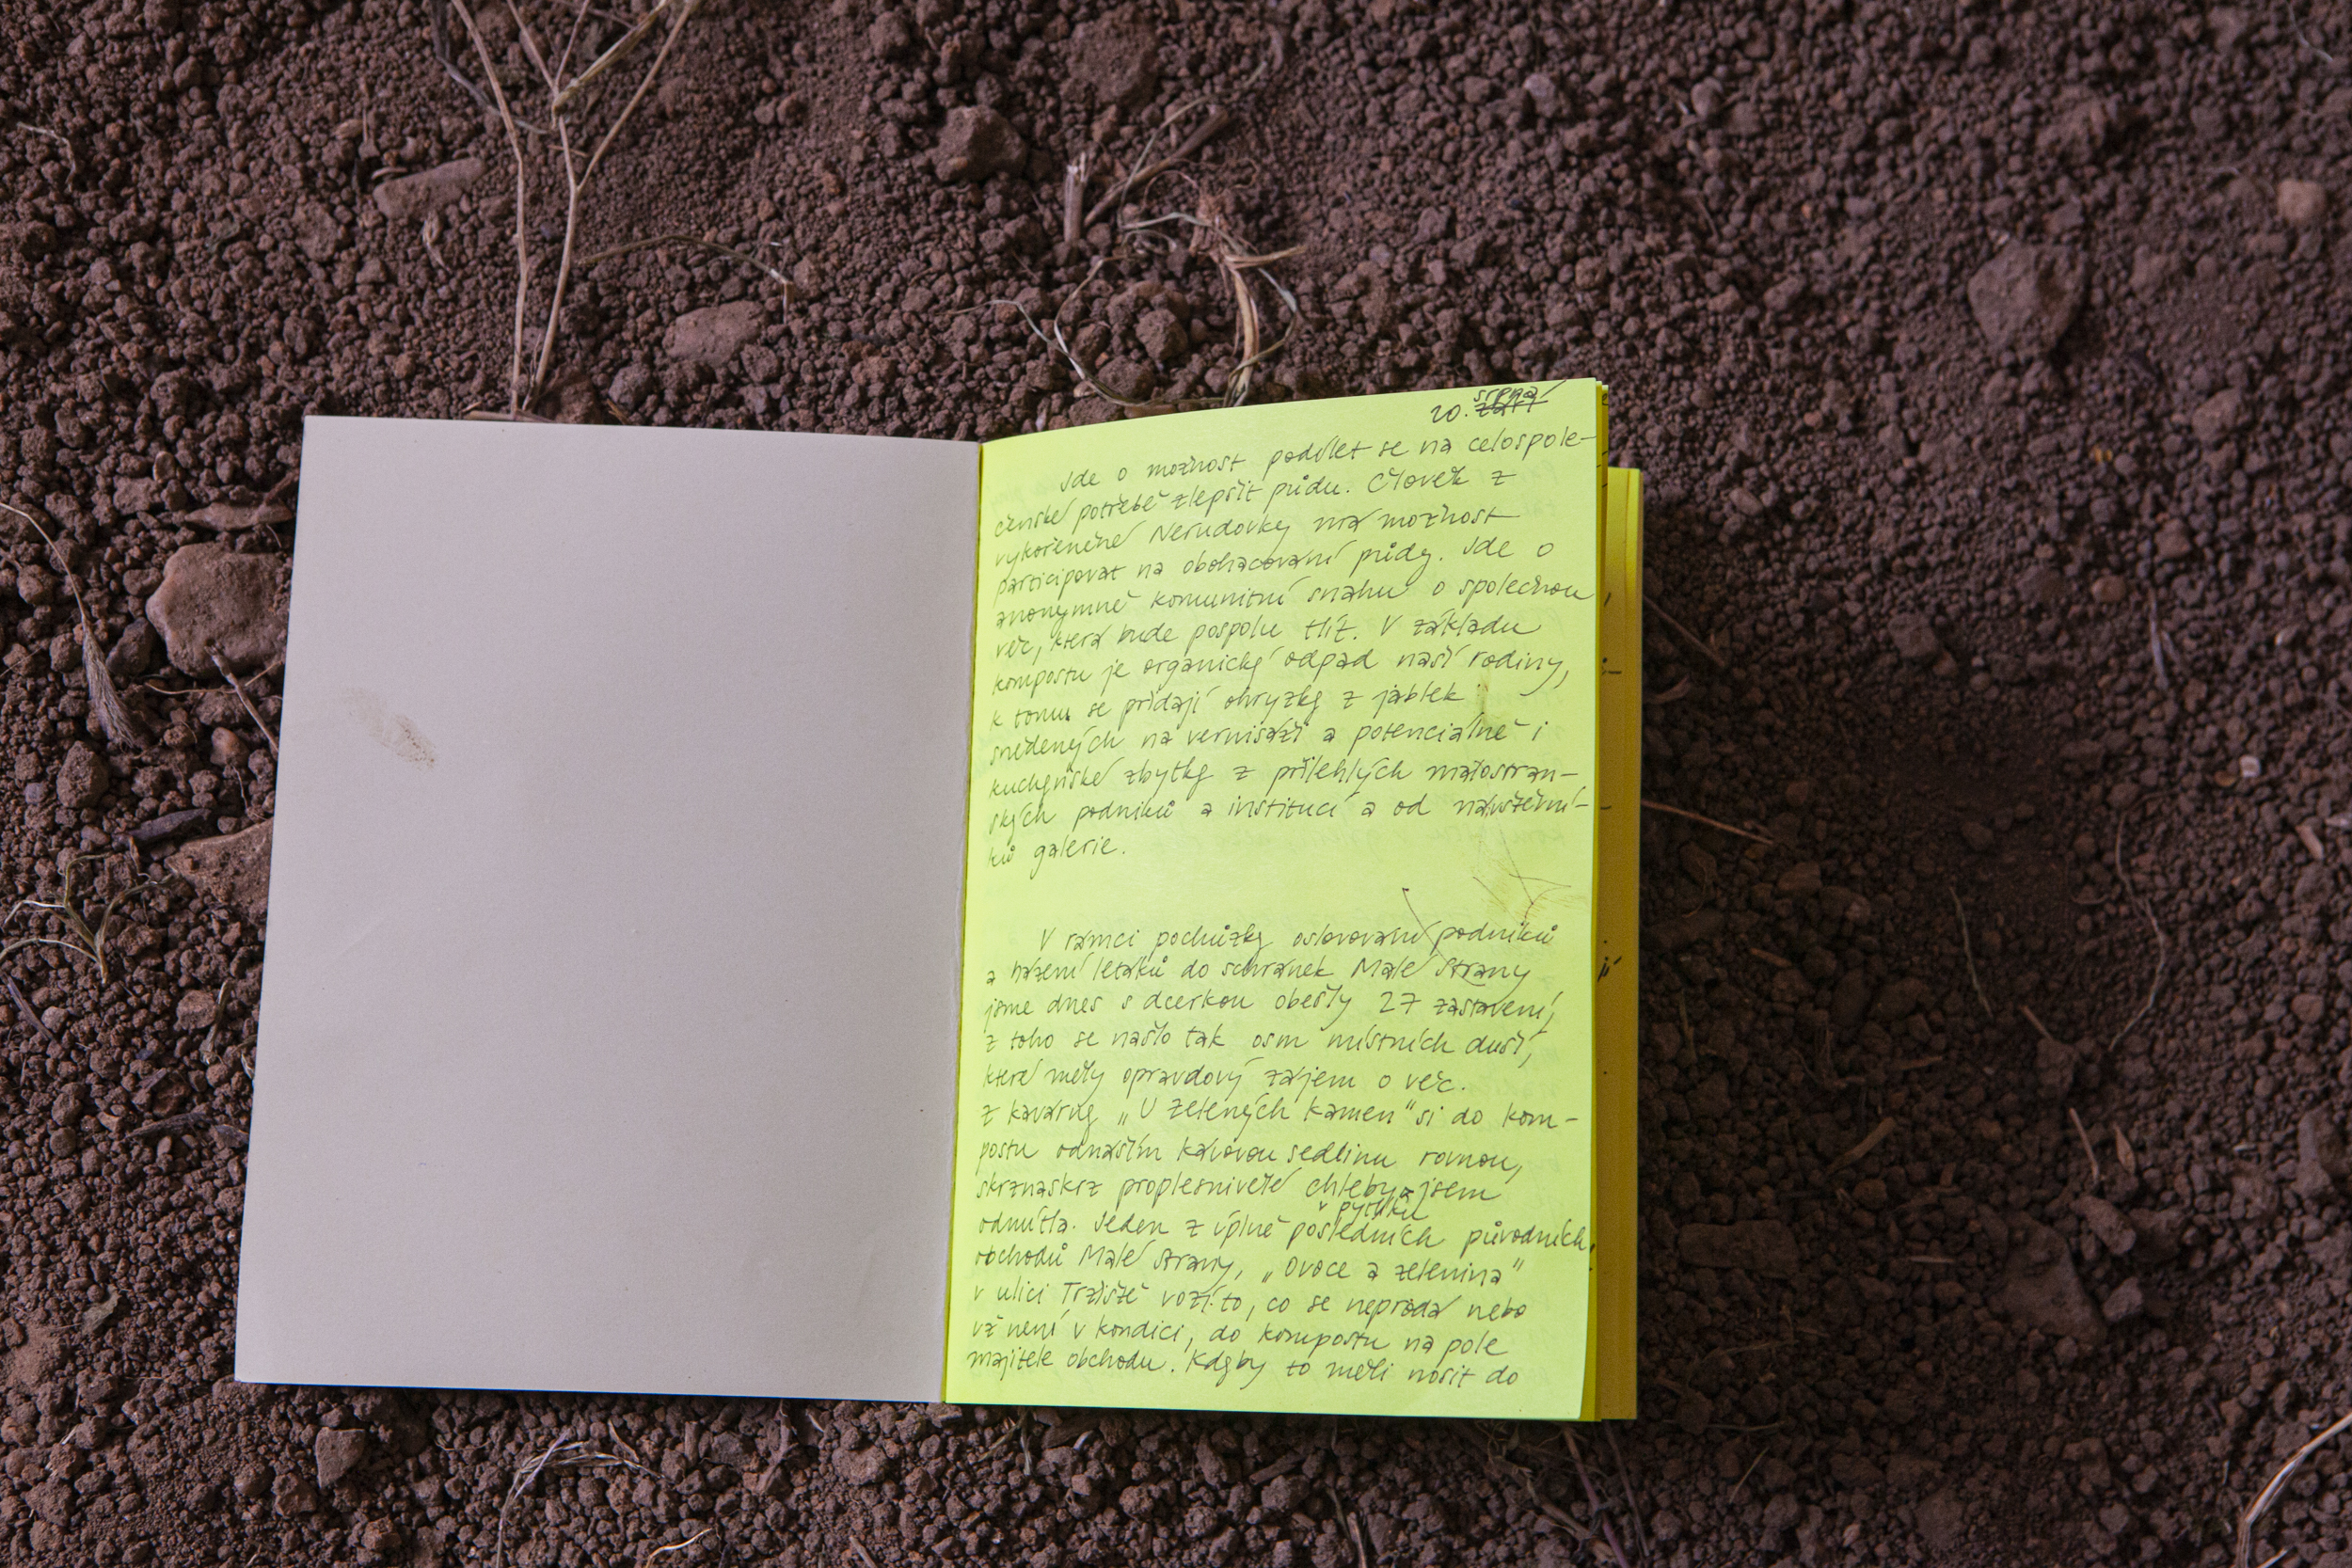 20. srpna
září
Jde o možnost podílet se na celospole-
čenské potřebě zlepšit půdu. Člověk z
vykořeněné Nerudovky má možnost
participovat na obohacování půdy. Jde o
anonymně komunitní snahu o společnou
věc, která bude pospolu tlít. V základu
kompostu je organický odpad naší rodiny,
k tomu se přidají ohryzky z jablek
snědených na vernisáži a potenciálně i
kuchyňské zbytky z přilehlých malostran-
ských podniků a institucí a od návštěvní-
ků galerie.
V rámci pochůzky oslovování podniků
a házení letáků do schránek Malé Strany
jsme dnes s dcerkou obešly 27 zastavení,
z toho se našlo tak osm místních duší,
které měly opravdový zájem o věc.
Z kavárny „U Zelených kamen" si do kom-
postu odnáším kávovou sedlinu rovnou,
skrznaskrz proplesnivělé chleby jsem
v pytlíku
odmítla. Jeden z úplně posledních původních
obchodů Malé Strany, „Ovoce a zelenina"
v ulici Tržiště vozí to, co se neprodá nebo
už není v kondici, do kompostu na pole
majitele obchodu. Kdyby to měli nosit do